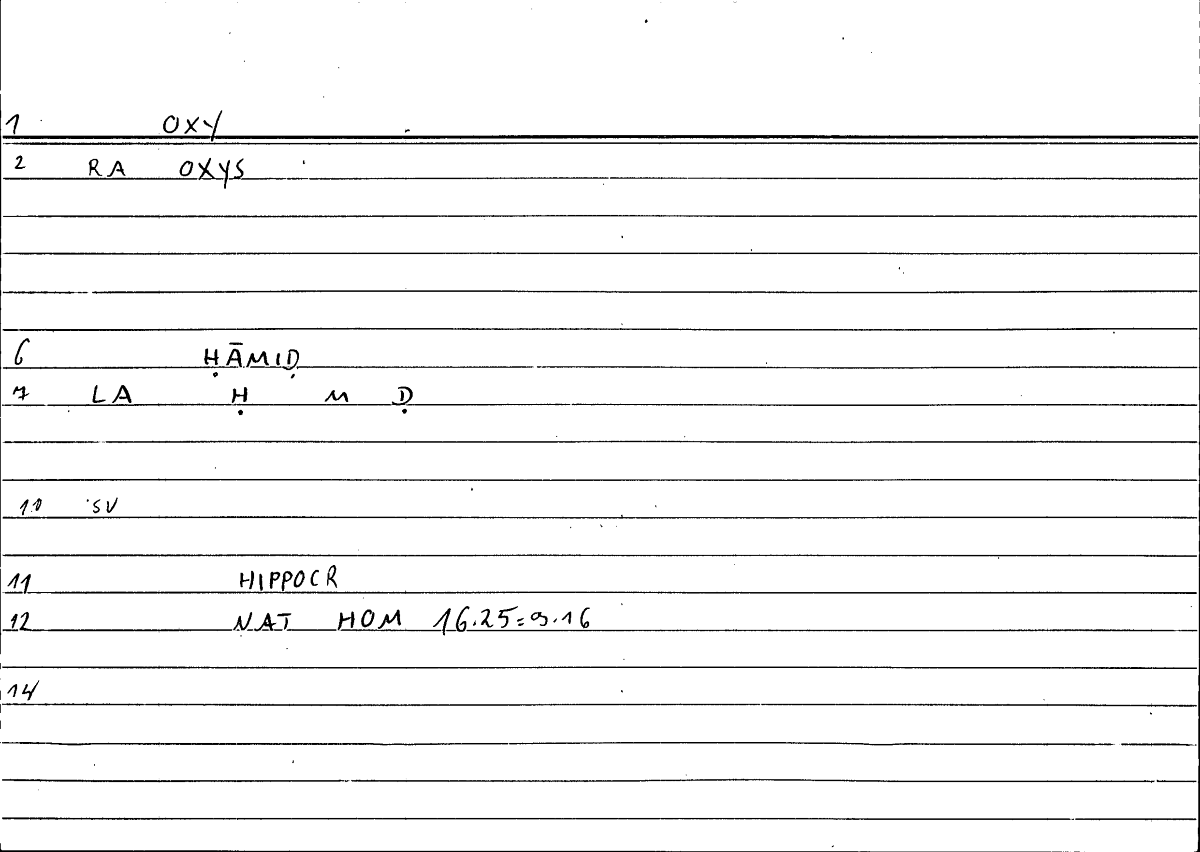 1 OXY
2 RA OXYS
6 ḤĀMIḌ
7 LA Ḥ M Ḍ
10 SV
11 HIPPOCR
12 NAT HOM 16.25=9.16
14